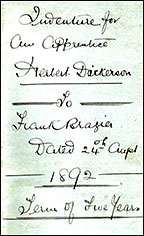 Indenture for
An Apprentice
Herbert Dickerson
To
Frank Brazier
Dated 24th Augst
1892
Term of Five Years